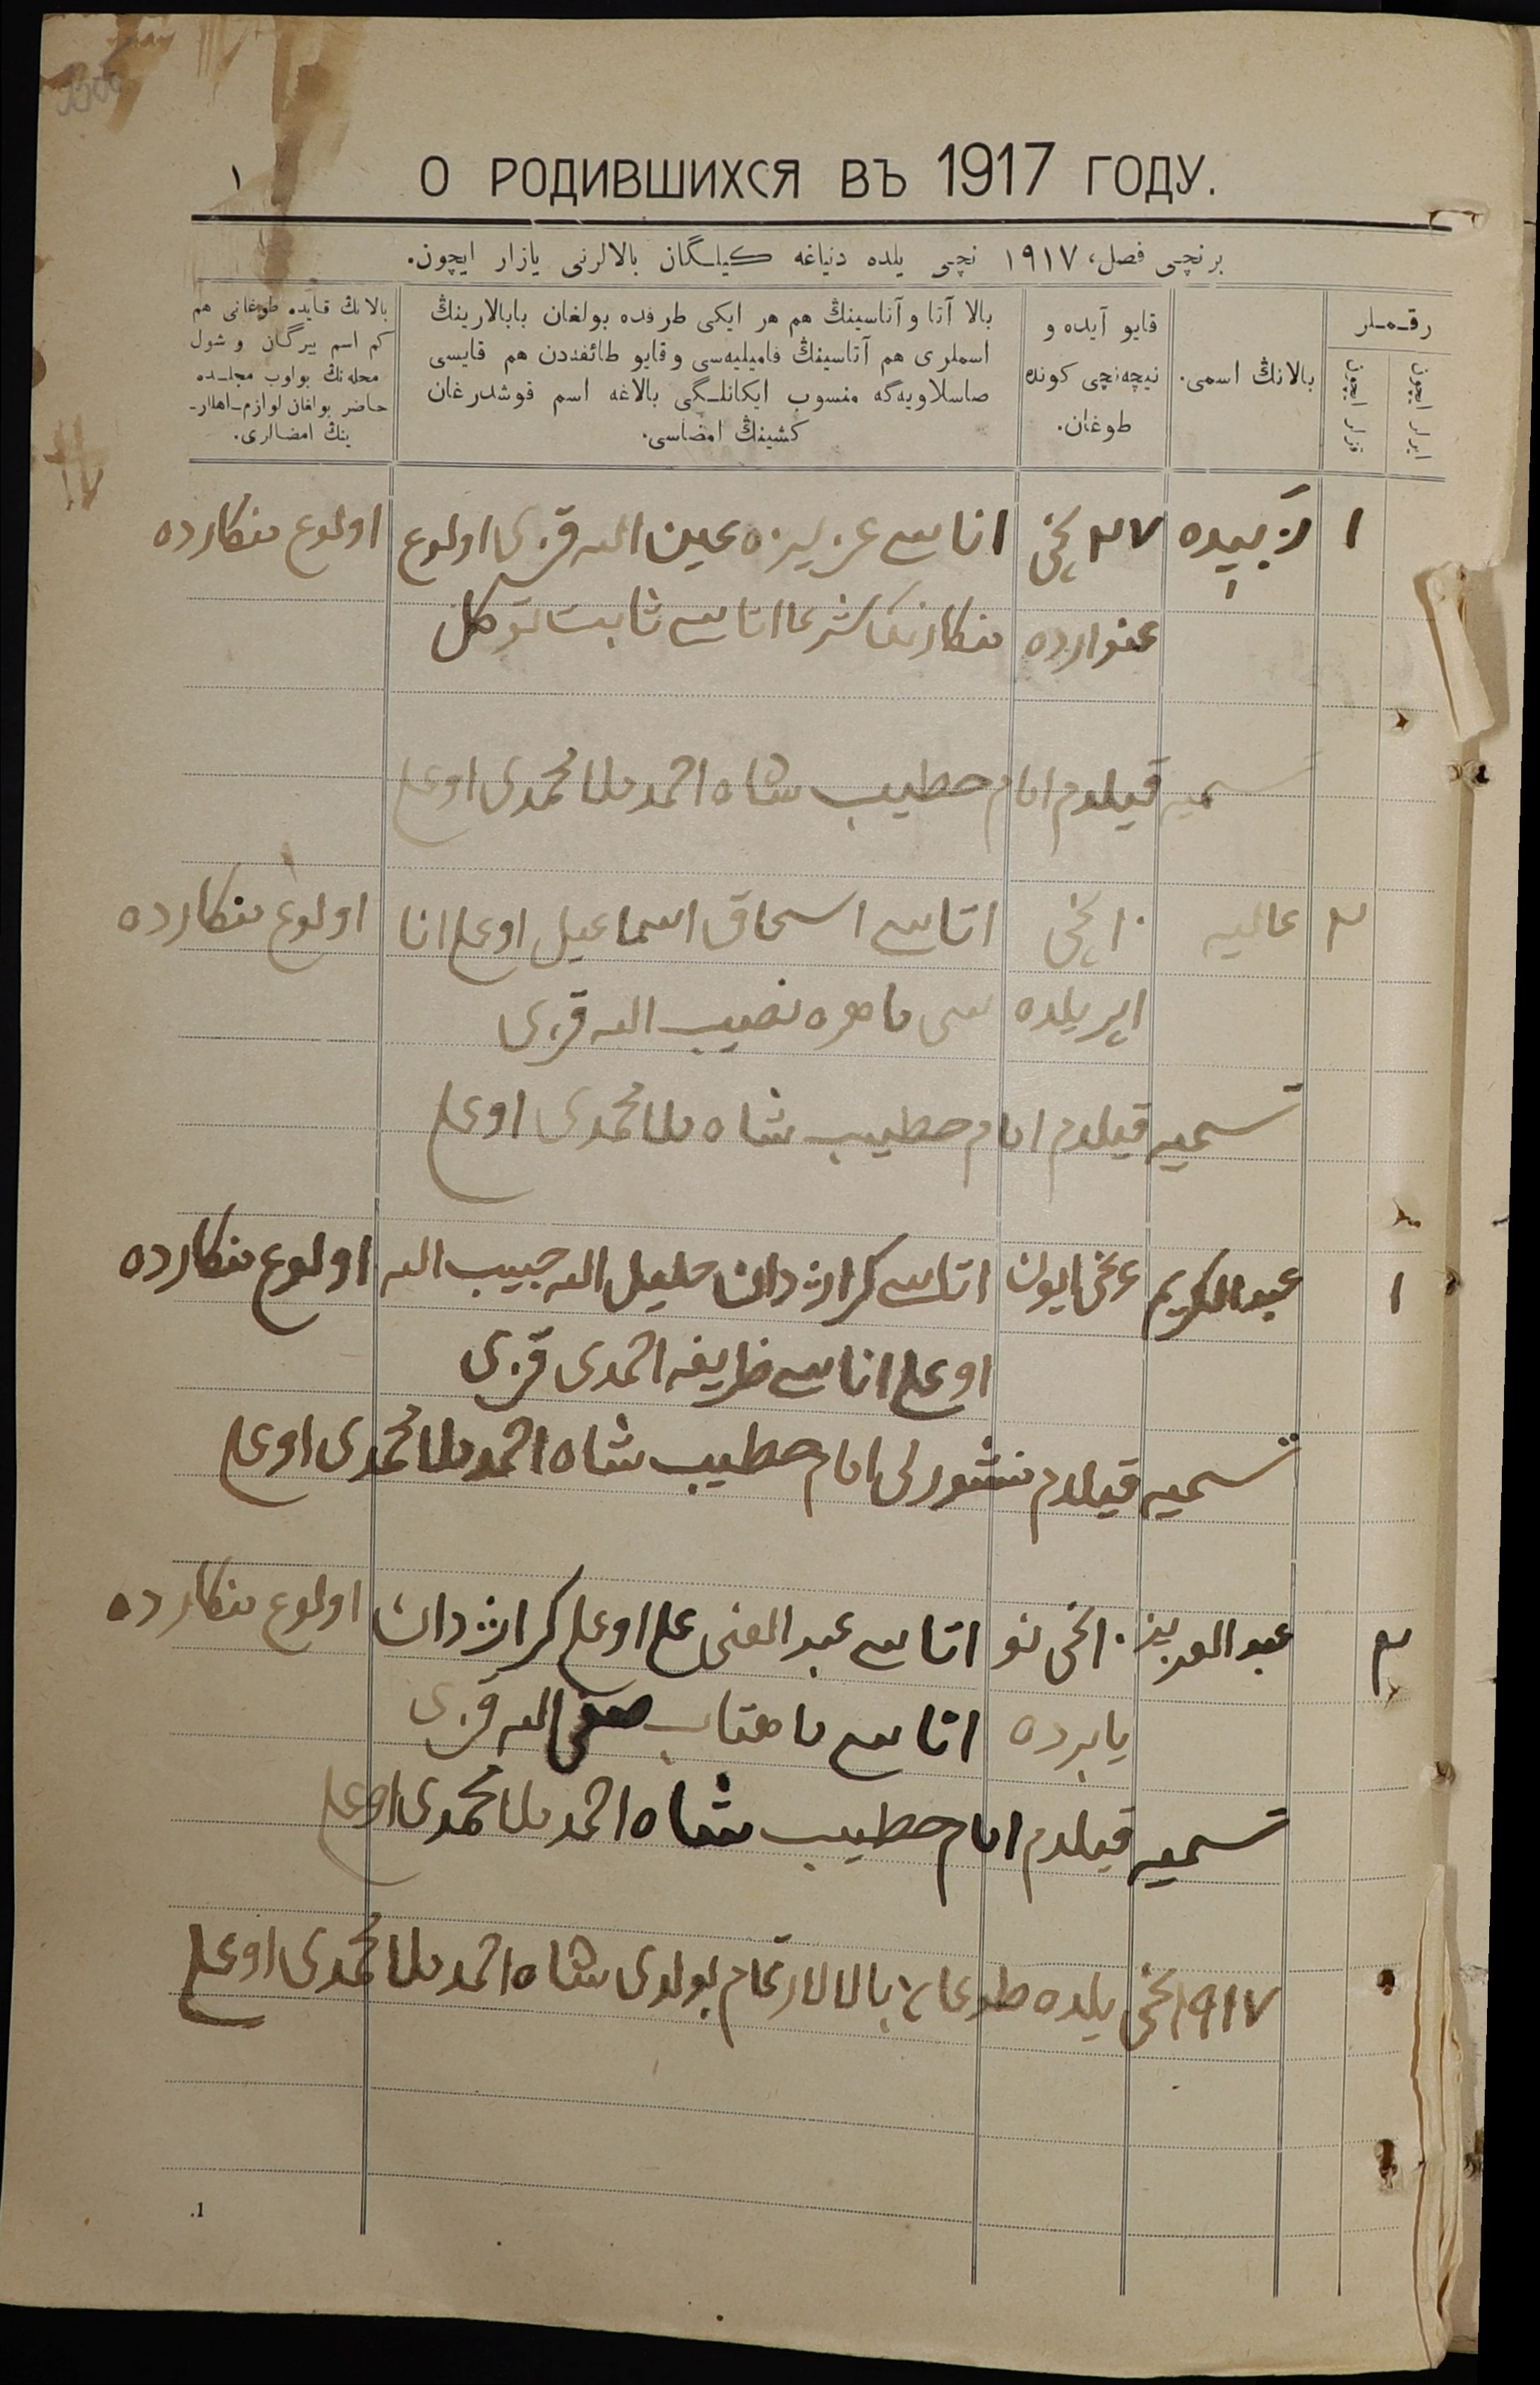 ١
О РОДИВШИХСЯ ВЪ 1917 ГОДУ.
برنچی فصل، ١٩١٧ نچی یلده دنیاغه کیلگان بالالرنی یازار ایچون.
رقملر
ایرلر ایچون
قزلر ایچون
بالانڭ اسمی.
قایو آیده و
نیچه‌نچی کونده
طوغان.
بالا آتا و آناسینڭ هم هر ایکی طرفده بولغان بابالارینڭ
اسملری هم آتاسینڭ فامیلیه‌سی و قایو طائفه‌دن هم قایسی
صاسلاویه‌گه منسوب ایکانلگی بالاغه اسم قوشدرغان
کشینڭ امضاسی.
بالانڭ قایده طوغانی هم
کم اسم بیرگان و شول
محله‌نڭ بولوب مجلسده
حاضر بولغان لوازم اهللر-
ینڭ امضالری.
١ زبیده ٢٧ نچی اناسی عزیزه عین الله قزی اولوغ اولوغ منکارده
عنوارده منکارنڭ شرعا اتاسی ثابت توکل
تسمیه قیلدم امام خطیب شاه احمد ملا محمدی اوغلی
٢ عالیه ١٠ نچی اتاسی اسحاق اسماعیل اوغلی انا اولوغ منکارده
اپریلده سی ماهره نصیب الله قزی
تسمیه قیلدم امام خطیب شاه ملا محمدی اوغلی
١ عبدالکریم ٤ نچی ایون اتاسی کراژدانن خلیل الله حبیب الله اولوغ منکارده
اوغلی اناسی ظریفه احمدی قزی
تسمیه قیلدم امام خطیب شاه احمد ملا محمدی اوغلی
٢ عبدالعزیز ١٠ نچی نو اتاسی عبدالغنی علی اوغلی کراژدانن اولوغ منکارده
یابرده اناسی ماهتاب صفی الله قزی
تسمیه قیلدم امام خطیب شاه احمد ملا محمدی اوغلی
١٩١٧ نچی یلده طوغان بالالار تمام بولدی شاه احمد ملا محمدی اوغلی
1.